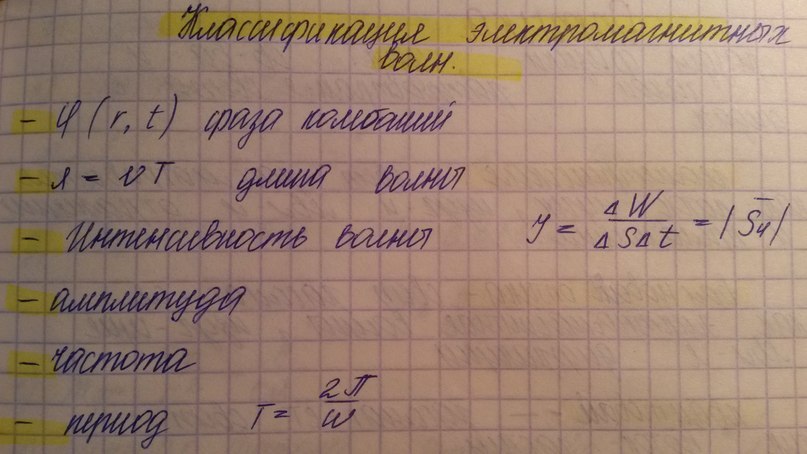 Классификация электромагнитных
волн.
- φ(r, t) фаза колебаний
- λ = υT длина волны
- Интенсивность волны J = ΔW / ΔSΔt = |S̄ч|
- амплитуда
- частота
- период T = 2П / ω